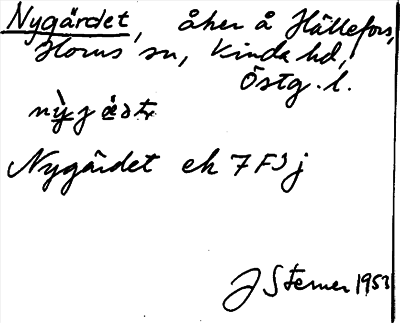 Nygärdet, åker å Hällefors,
Horns sn, Kinda hd,
Östg. l.
Nygärdet ek 7 F 3 j
J Sterner 1953